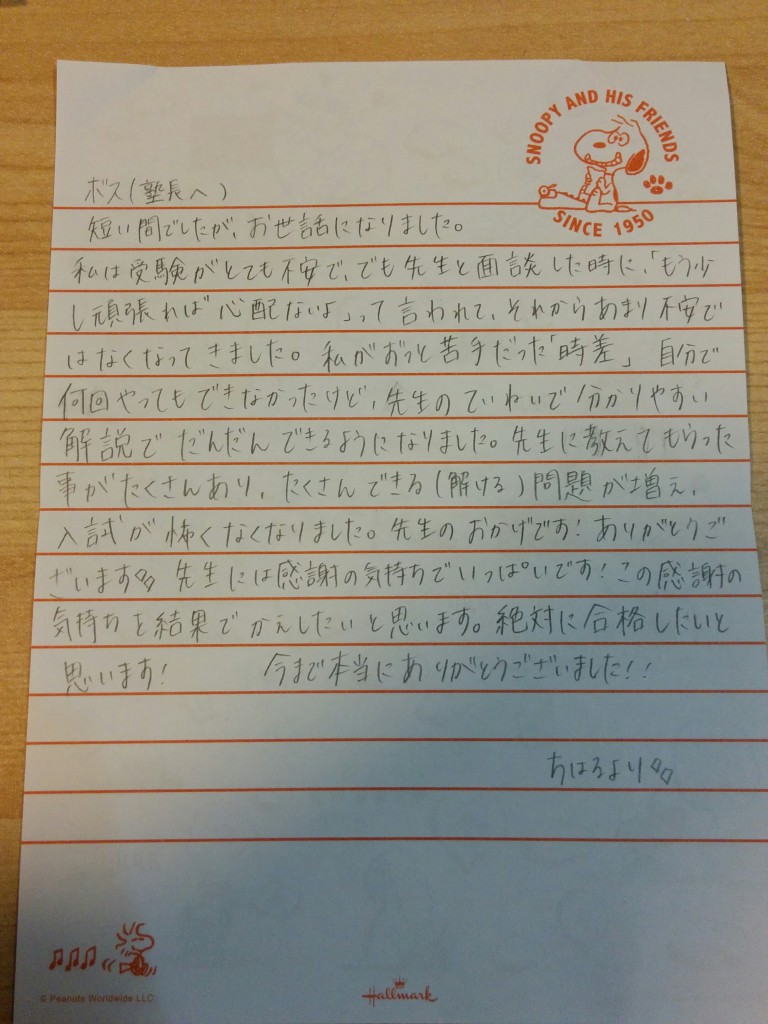 SNOOPY AND HIS FRIENDS
SINCE 1950
ボス(塾長へ)
短い間でしたが、お世話になりました。
私は受験がとても不安で、でも先生と面談した時に、「もう少
し頑張れば心配ないよ」って言われて、それからあまり不安で
はなくなってきました。私がずっと苦手だった「時差」自分で
何回やってもできなかったけど、先生のていねいで分かりやすい
解説でだんだんできるようになりました。先生に教えてもらった
事がたくさんあり、たくさんできる(解ける)問題が増え、
入試が怖くなくなりました。先生のおかげです!ありがとうご
ざいます 先生には感謝の気持ちでいっぱいです!この感謝の
気持ちを結果でかえしたいと思います。絶対に合格したいと
思います! 今まで本当にありがとうございました!!
ちはるより
© Peanuts Worldwide LLC
Hallmark